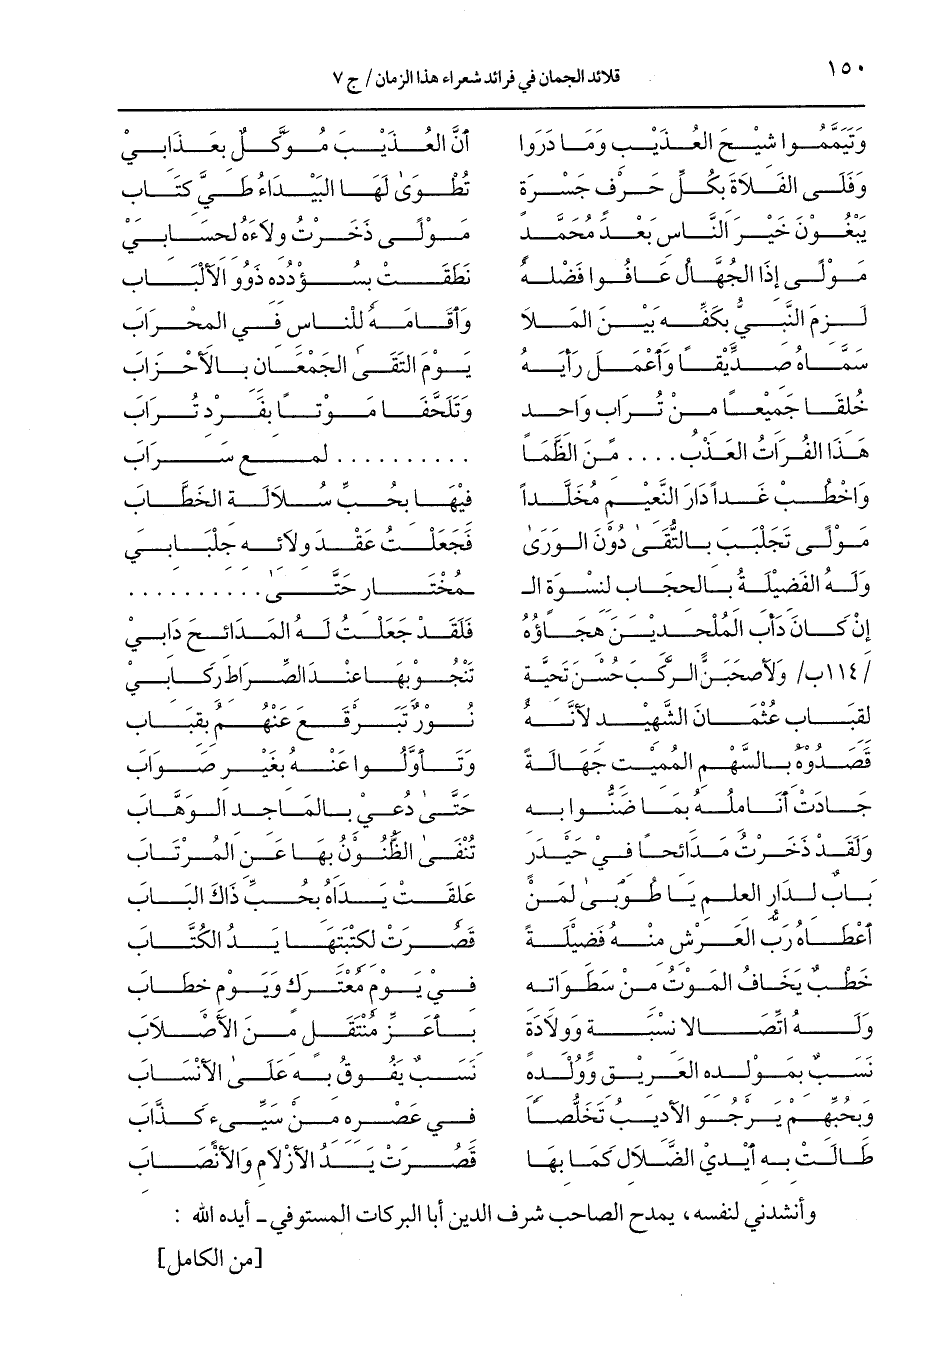 ١٥٠
قلائد الجمان في فرائد شعراء هذا الزمان / ج ٧
وَتَيَمَّمُوا شِيْحَ العُذَيْبِ وَمَا دَرَوا أَنَّ العُذَيْبَ مُوَكَّلٌ بِعَذَابِيْ
وَفَلَى الفَلَاةَ بِكُلِّ حَرْفٍ جَسْرَةٍ تُطْوَىٰ لَهَا البَيْدَاءُ طَيَّ كِتَابِ
يَبْغُونَ خَيْرَ النَّاسِ بَعْدَ مُحَمَّدٍ مَوْلًى ذَخَرْتُ وِلَاءَهُ لِحِسَابِيْ
مَوْلًى إِذَا الجُهَّالُ عَافُوا فَضْلَهُ نَطَقَتْ بِسُؤْدَدِهِ ذَوُو الأَلْبَابِ
لَزِمَ النَّبِيُّ بِكَفِّهِ بَيْنَ المَلَا وَأَقَامَهُ لِلنَّاسِ فِي المِحْرَابِ
سَمَّاهُ صِدِّيْقًا وَأَعْمَلَ رَأْيَهُ يَوْمَ التَقَىٰ الجَمْعَانِ بِالأَحْزَابِ
خُلِقَا جَمِيْعًا مِنْ تُرَابٍ وَاحِدٍ وَتَلَحَّفَا مَوْتًا بِفَرْدِ تُرَابِ
هَذَا الفُرَاتُ العَذْبُ .... مِنَ الظَّمَا .......... لَمْعِ سَرَابِ
وَاخْطُبْ غَدًا دَارَ النَّعِيْمِ مُخَلَّدًا فِيْهَا بِحُبِّ سُلَالَةِ الخَطَّابِ
مَوْلًى تَجَلْبَبَ بِالتُّقَىٰ دُوْنَ الوَرَىٰ فَجَعَلْتُ عِقْدَ وِلَائِهِ جِلْبَابِيْ
وَلَهُ الفَضِيْلَةُ بِالحِجَابِ لِنِسْوَةِ الـ ـمُخْتَارِ حَتَّىٰ ..........
إِنْ كَانَ دَأْبَ المُلْحِدِيْنَ هِجَاؤُهُ فَلَقَدْ جَعَلْتُ لَهُ المَدَائِحَ دَابِيْ
/١١٤ب/ وَلأَصْحَبَنَّ الرَّكْبَ حُسْنَ تَحِيَّةٍ تَنْجُو بِهَا عِنْدَ الصِّرَاطِ رِكَابِيْ
لِقِبَابِ عُثْمَانَ الشَّهِيْدِ لأَنَّهُ نُورٌ تَبَرْقَعَ عَنْهُمُ بِقِبَابِ
قَصَدُوهُ بِالسَّهْمِ المُمِيْتِ جَهَالَةً وَتَأَوَّلُوا عَنْهُ بِغَيْرِ صَوَابِ
جَادَتْ أَنَامِلُهُ بِمَا ضَنُّوا بِهِ حَتَّىٰ دُعِيْ بِالمَاجِدِ الوَهَّابِ
وَلَقَدْ ذَخَرْتُ مَدَائِحًا فِيْ حَيْدَرٍ تُنْفَىٰ الظُّنُوْنُ بِهَا عَنِ المُرْتَابِ
بَابٌ لِدَارِ العِلْمِ يَا طُوبَىٰ لِمَنْ عَلِقَتْ يَدَاهُ بِحُبِّ ذَاكَ البَابِ
أَعْطَاهُ رَبُّ العَرْشِ مِنْهُ فَضِيْلَةً قَصُرَتْ لِكَتْبَتِهَا يَدُ الكُتَّابِ
خَطْبٌ يَخَافُ المَوْتُ مِنْ سَطَوَاتِهِ فِيْ يَوْمِ مُعْتَرَكٍ وَيَوْمِ خِطَابِ
وَلَهُ اتِّصَالَا نِسْبَةٍ وَوِلَادَةٍ بِأَعَزِّ مُنْتَقَلٍ مِنَ الأَصْلَابِ
نَسَبٌ بِمَوْلِدِهِ العَرِيْقِ وَوُلْدِهِ نَسَبٌ يَفُوقُ بِهِ عَلَىٰ الأَنْسَابِ
وَبِحُبِّهِمْ يَرْجُو الأَدِيْبُ تَخَلُّصًا فِي عَصْرِهِ مِنْ سَيِّىءٍ كَذَّابِ
طَالَتْ بِهِ أَيْدِيْ الضَّلَالِ كَمَا بِهَا قَصُرَتْ يَدُ الأَزْلَامِ وَالأَنْصَابِ
وأنشدني لنفسه، يمدح الصاحب شرف الدين أبا البركات المستوفي ـ أيده الله :
[من الكامل]